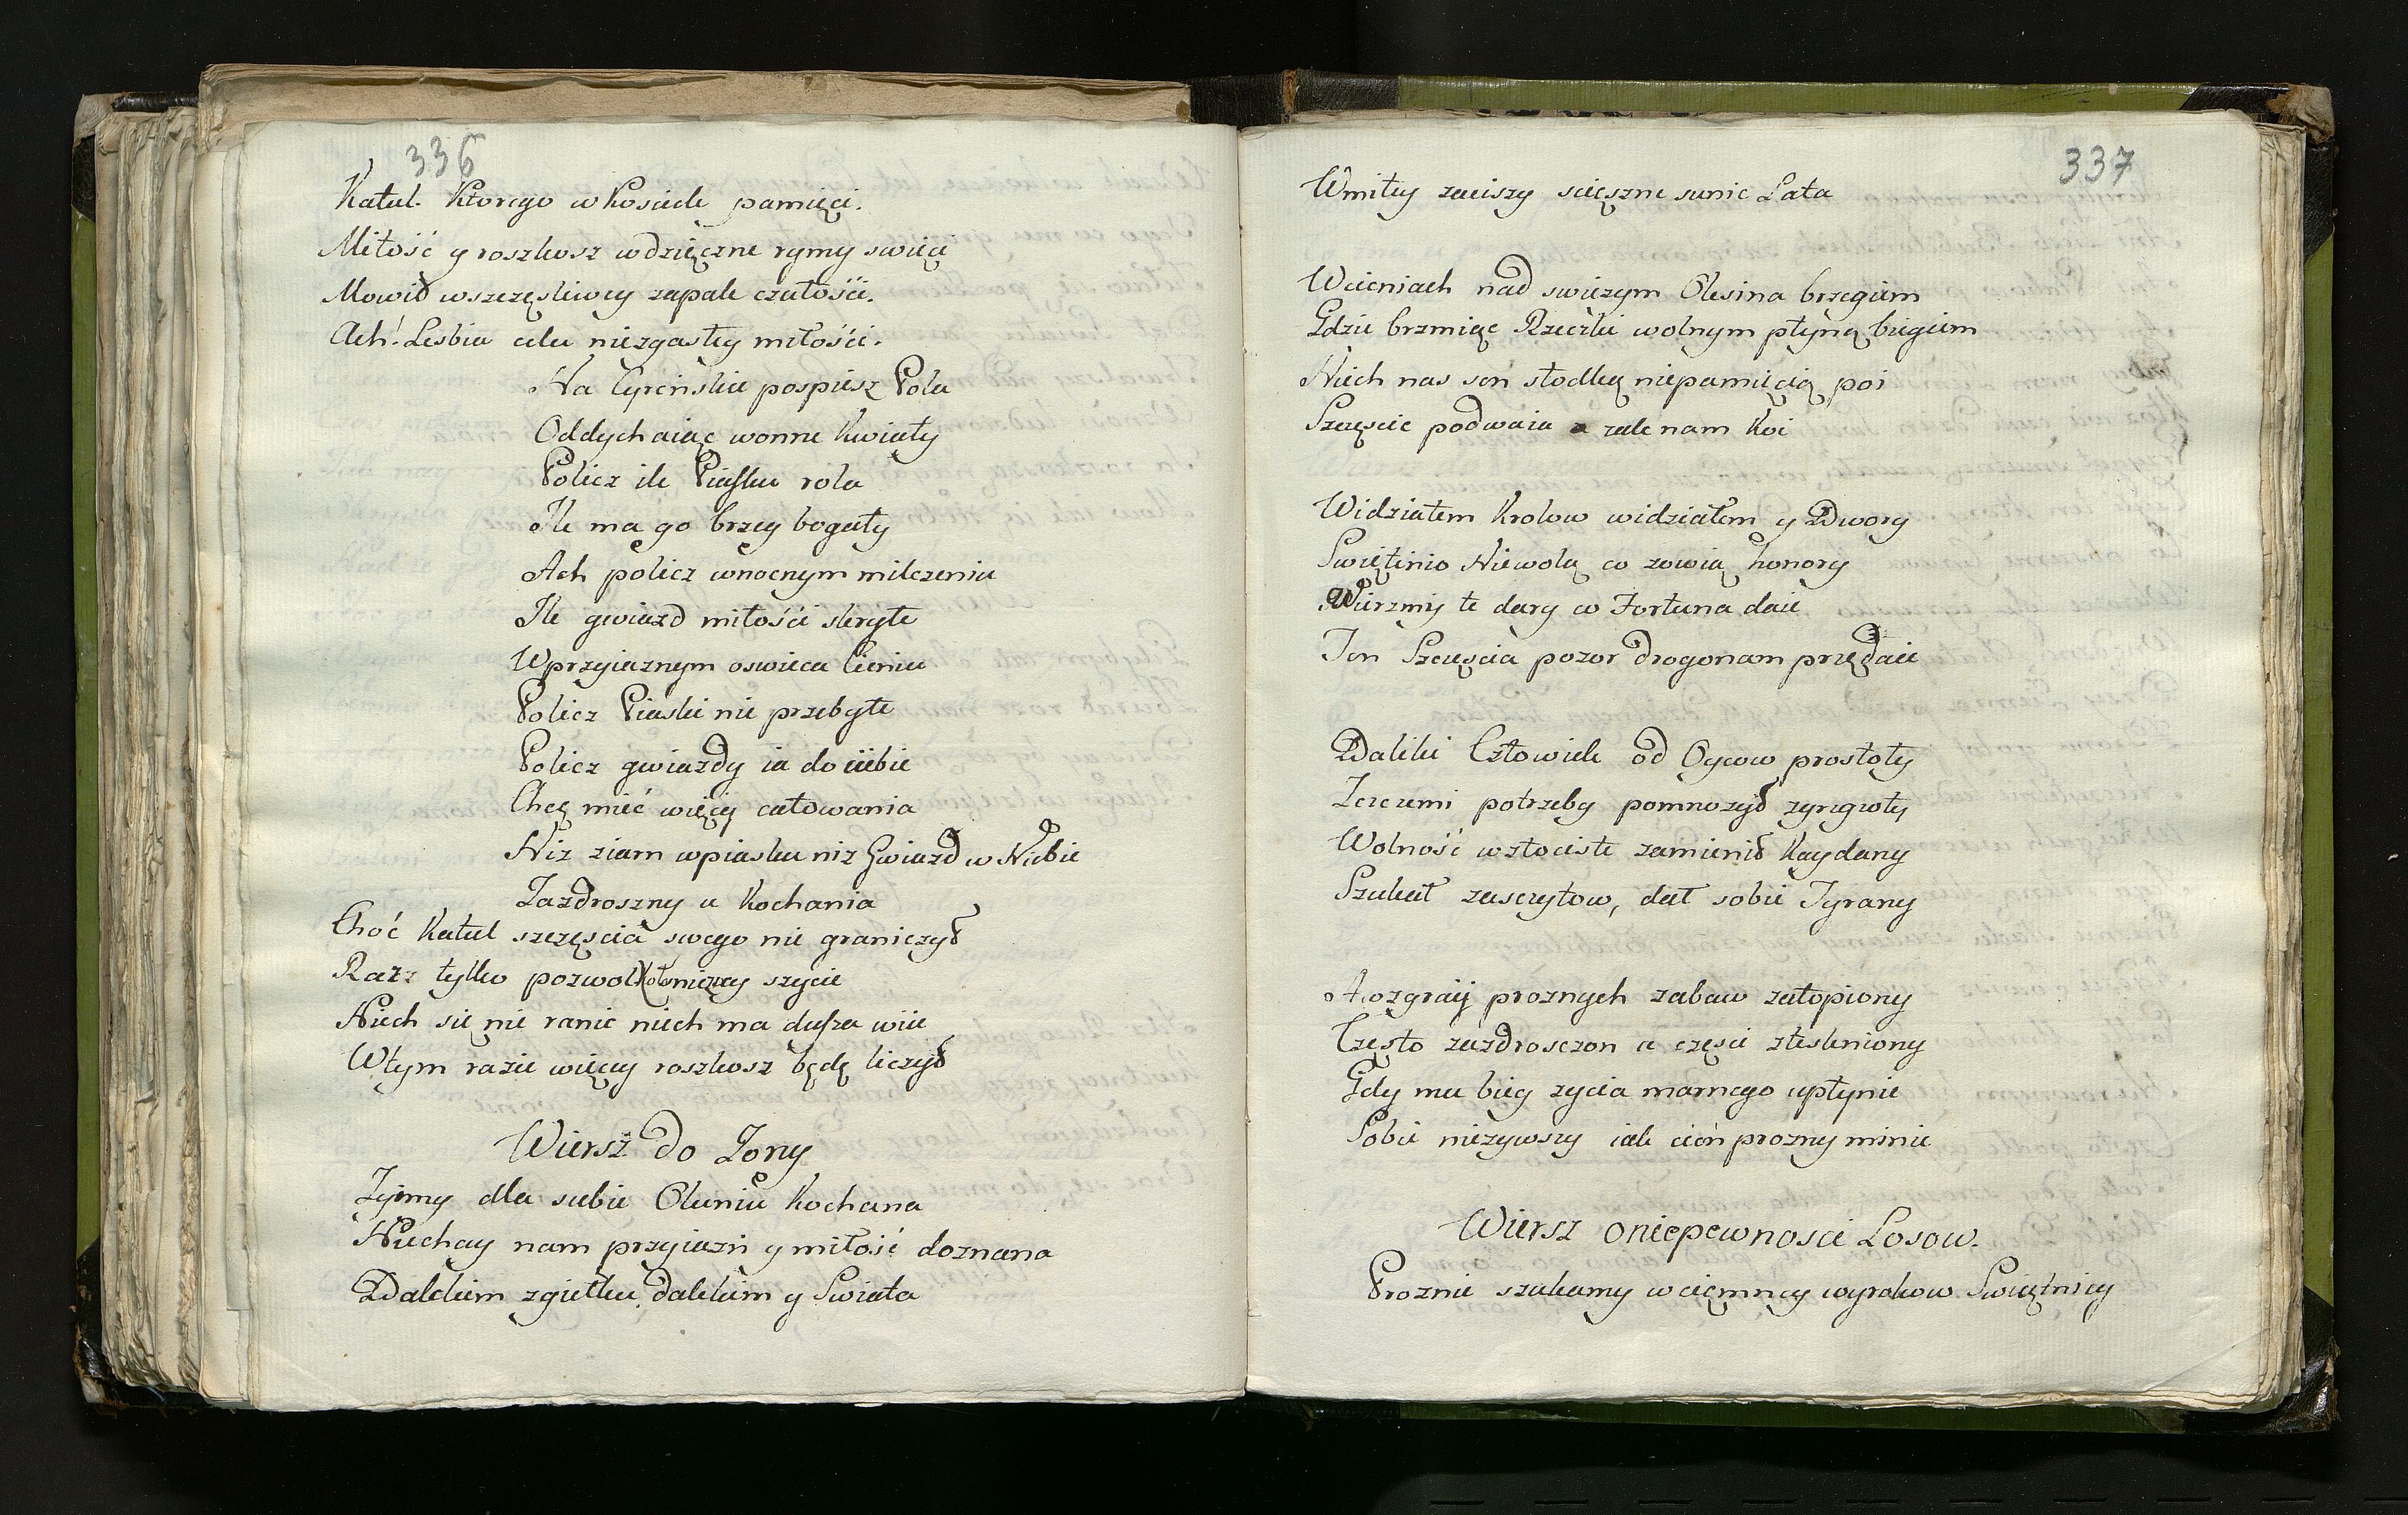 336
Katul. Ktorego w Kosciele pamięci.
Miłość y roszkosz wdzięczne rymy swięci
Mowił wszczęsliwey zapale czułości.
Ach! Lesbia celu niezgasłey miłości.
Na Cyreńskie pospiesz Pola
Oddychaiąc wonne Kwiaty
Policz ile Piasku rola
Ile ma go brzeg bogaty
Ach policz wnocnym milczeniu
Ile gwiazd miłości skryte
Wprzyiaznym oswieca Cieniu
Policz Piaski nie przebyte
Policz gwiazdy ia do ciebie
Chcę mieć więcy całowania
Niz ziarn wpiasku niz Gwiazd w Niebie
Zazdroszny u Kochania
Choć Katul szczęscia swego nie graniczył
Raz: tylko pozwol szycie
Niech się nie ranie niech ma dusza wiie
Wtym razie więcey roszkosz będę liczył
Wiersz do Zony
Zyimy dla siebie Oluniu Kochana
Niechay nam przyiazń y miłość doznana
Dalekim zgiełku dalekim y Swiata
337
Wmiłey zaciszy scięszne sunie Lata
Wcieniach nad swiezym Olesina brzegiem
Gdzie brzmiąc Rzeczki wolnym płyną biegiem
Niech nas sen słodką niepamięcią poi
Szczęscie podwaia a zale nam Koi
Widziałem Krolow widziałem y Dwory
Swiętinio Niewolą co zowią honory
Wierzmiy te dary co Fortuna daie
Ten Szczęscia pozor drogo nam przędaie
Daleki Człowiek od Oycow prostoty
Zerzemi potrzeby pomnozył zyngroty
Wolność wzłociste zamienił Kaydany
Szukał zaszczytow, dał sobie Tyrany
Rozgraiy proznych zabaw zatopiony
Często zazdrosczon a częsci zteskniony
Gdy mu bieg zycia marnego upłynie
Sobie niezywszy iak cień prozny minie
Wiersz oniepewnosci Losow.
Proznie szukamy wciemney wyrokow Swiętnicy